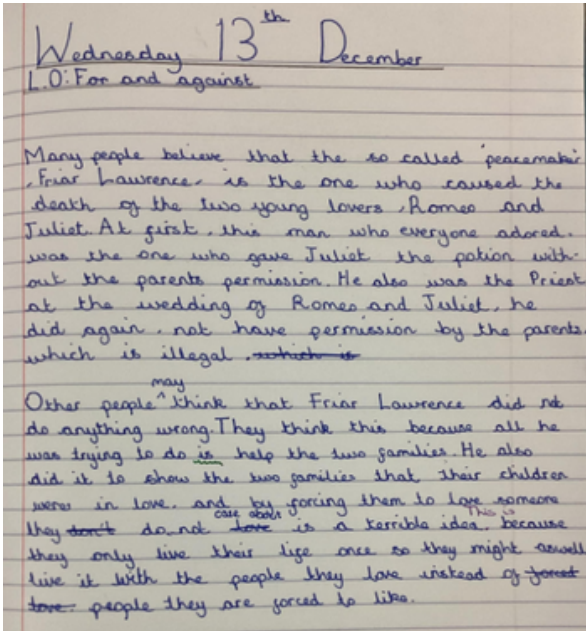 Wednesday 13th December
L.O: For and against
Many people believe that the so called 'peacemaker'
, Friar Lawrence, is the one who caused the
death of the two young lovers, Romeo and
Juliet. At first, this man who everyone adored,
was the one who gave Juliet the potion with-
out the parents permission. He also was the Priest
at the wedding of Romeo and Juliet, he
did again, not have permission by the parents,
which is illegal. which is
Other people may think that Friar Lawrence did not
do anything wrong. They think this because all he
was trying to do is help the two families. He also
did it to show the two families that their children
were in love, and by forcing them to love someone
they don't do not love care about is a terrible idea. This is because
they only live their life once so they might aswell
live it with the people they love instead of forced
love. people they are forced to like.